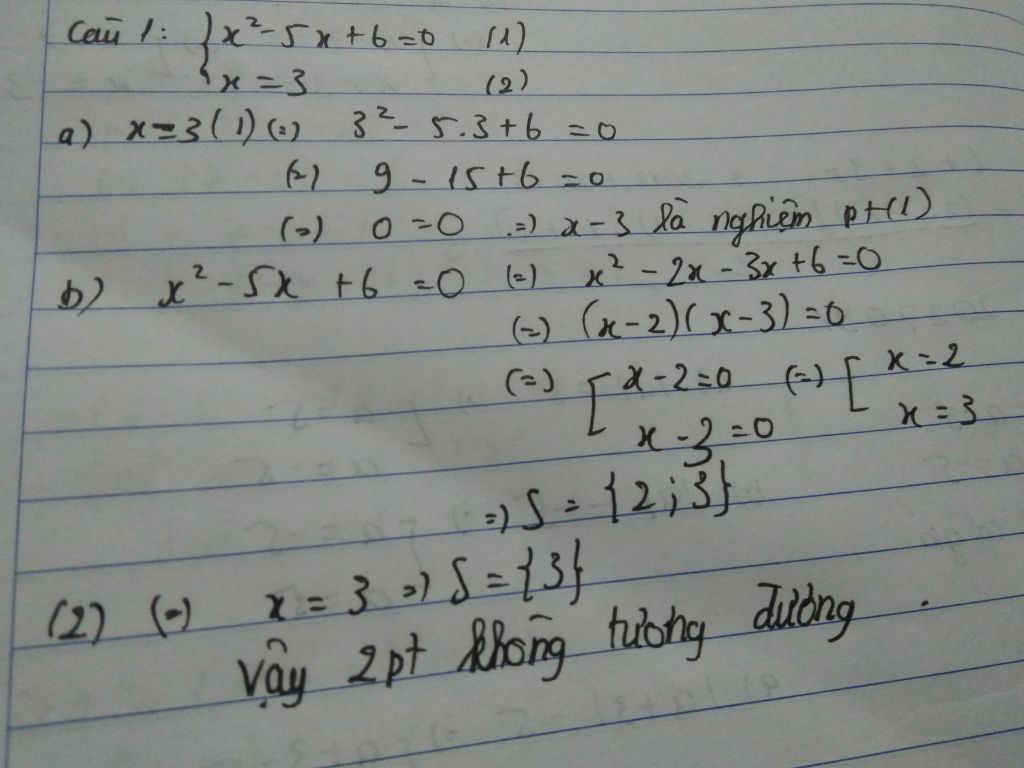 Câu 1: { x² - 5x + 6 = 0 (1)
x = 3 (2)
a) x = 3 (1) (=) 3² - 5.3 + 6 = 0
(=) 9 - 15 + 6 = 0
(=) 0 = 0 => x - 3 là nghiệm pt (1)
b) x² - 5x + 6 = 0 (=) x² - 2x - 3x + 6 = 0
(=) (x - 2)(x - 3) = 0
(=) [ x - 2 = 0 (=) [ x = 2
x - 3 = 0 x = 3
=> S = {2; 3}
(2) (=) x = 3 => S = {3}
Vậy 2 pt không tương đương.